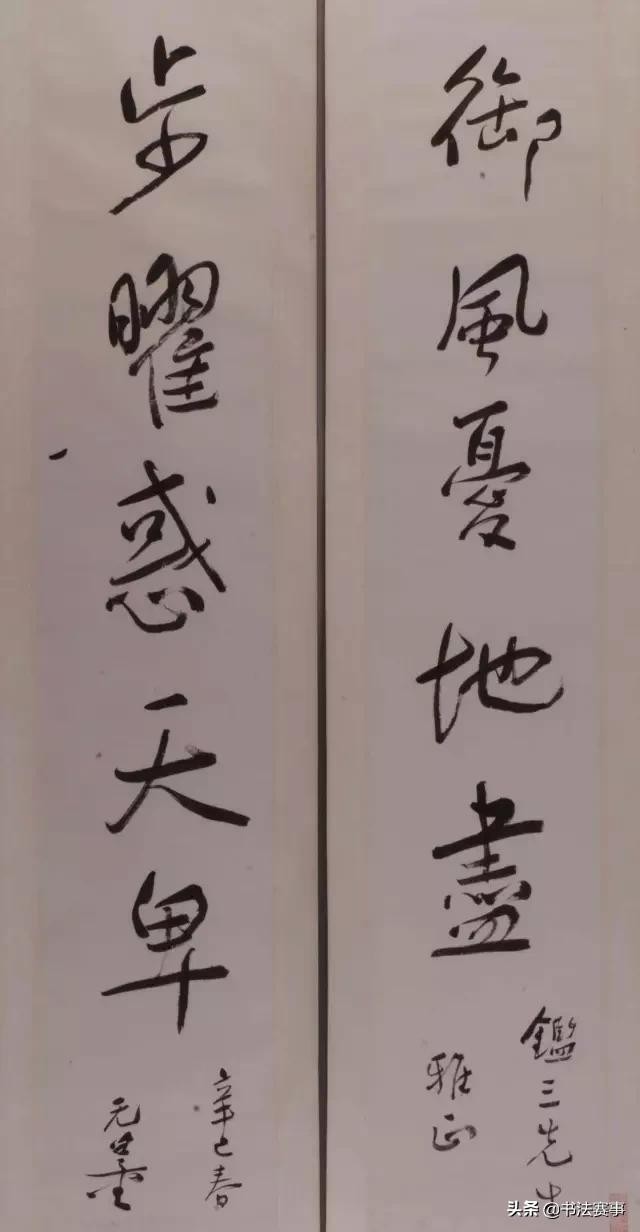 御風憂地盡
鑑三先生
雅正
步曜惑天卑
辛巳春
头条 @书法赛事